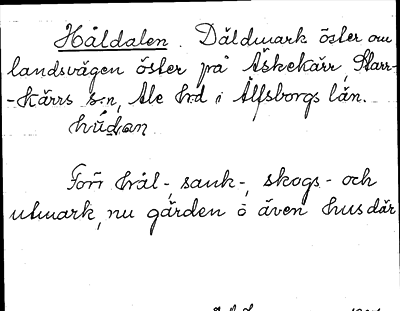 Håldalen. Däldmark öster om
landsvägen öster på Äskekärr, Starr-
-kärrs s:n, Ale h:d i Älfsborgs län.
hùdạn
Förr hål-, sank-, skogs- och
utmark, nu gården o även hus där